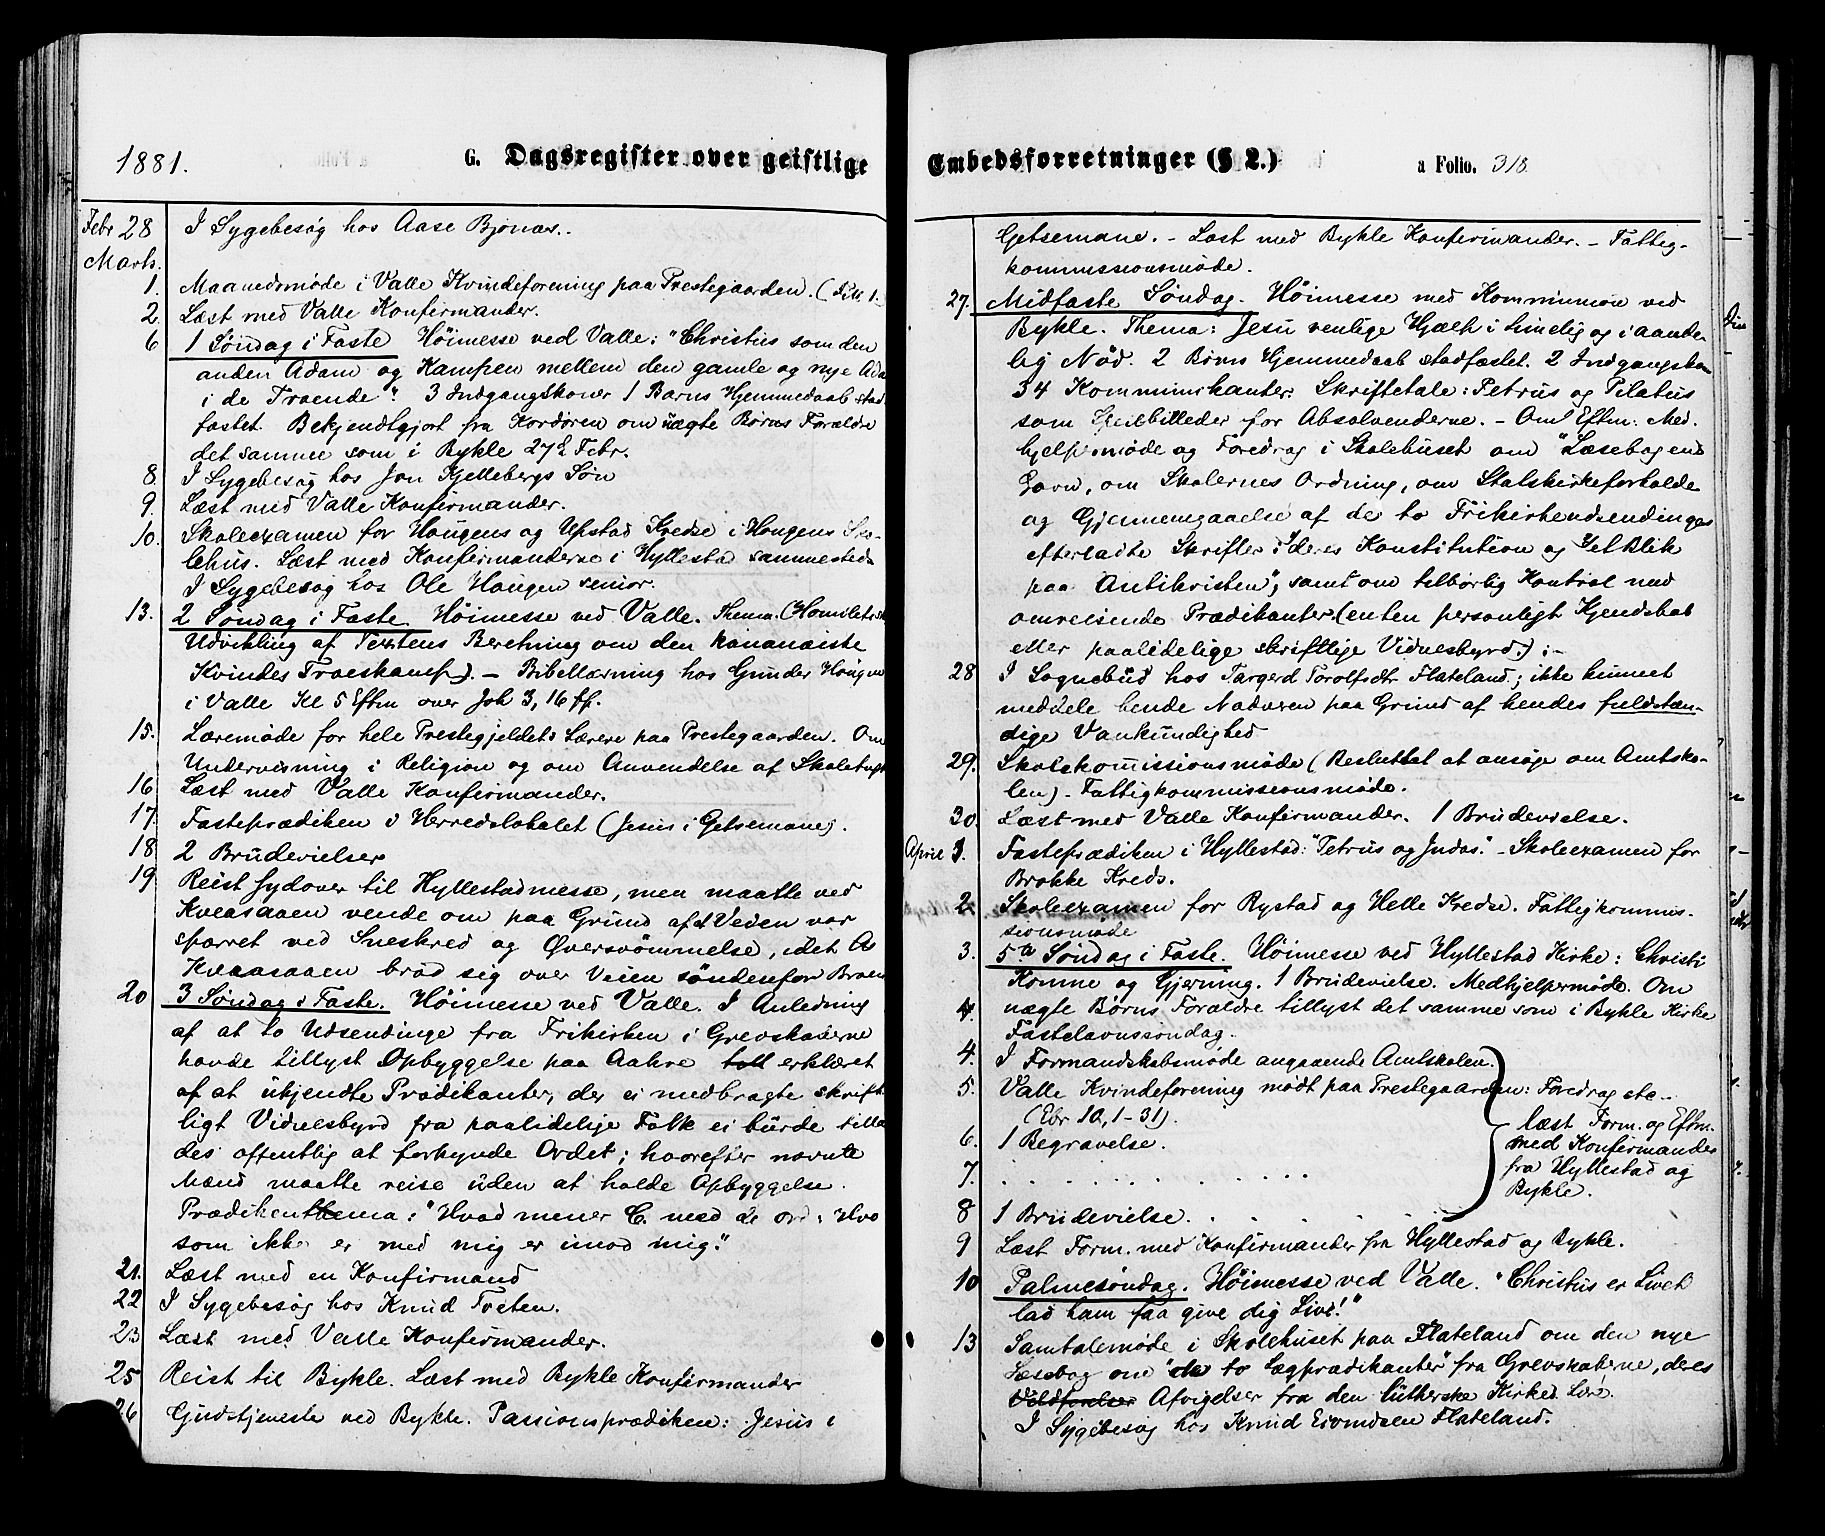 1881.
G. Dagsregister over geistlige
Febr 28 I Sygebesøg hos Aase Bjønæs.
Marts.
1. Maanedsmøde i Valle Kvindeforening paa Prestegaarden.
2. Læst med Valle Konfirmander.
6 1 Søndag i Faste Høimesse ved Valle: "Christus som den
anden Adam og Kampen mellem den gamle og nye Ada
i de Troende". 3 Indgangskoner 1 Barns Hjemmedaab stad
fæstet. Bekjendtgjort fra Kordøren om uægte Børns Forældre
det samme som i Bykle 27de Febr.
8. I Sygebesøg hos Jon Kjellebergs Søn
9. Læst med Valle Konfirmander.
10. Skoleexamen for Haugens og Upstad Kredse i Haugens Sko-
lehus. Læst med Konfirmanderne i Hyllestad sammesteds
I Sygebesøg hos Ole Haugen senior.
13. 2 Søndag i Faste Høimesse ved Valle. Thema. (Homiletisk
Udvikling af Textens Beretning om den kananæiske
Kvindes Troeskamp). – Bibellæsning hos Gunder Haugen
i Valle Kl 5 Eftm over Joh 3, 16 ff.
15. Læremøde for hele Prestegjeldets Lærere paa Prestegaarden. Om
Undervisning i Religion og om Anvendelse af Skoletugt
16 Læst med Valle Konfirmander.
17. Fasteprædiken i Herredslokalet (Jesus i Getsemane).
18 2 Brudevielser
19 Reist sydover til Hyllestadmesse, men maatte ved
Kveasaaen vende om paa Grund af at Veien var
spærret ved Sneskred og Oversvømmelse, idet As
Kveasaaen brød sig over Veien søndenfor Broen
20 3 Søndag i Faste. Høimesse ved Valle. I Anledning
af at to Udsendinge fra Frikirken i Grevskaberne
havde tillyst Opbyggelse paa Aakre erklæret
af at ukjendte Prædikanter, der ei medbragte skrift-
ligt Vidnesbyrd fra paalidelige Folk ei burde tilla
des offentlig at forkynde Ordet; hvorefter nævnte
Mænd maatte reise uden at holde Opbyggelse.
Prædikenthema: "Hvad mener C. med de ord: Hvo
som ikke er med mig er imod mig."
21. Læst med en Konfirmand
22 I Sygebesøg hos Knud Tveten.
23 Læst med Valle Konfirmander.
25 Reist til Bykle. Læst med Bykle Konfirmander
26 Gudstjeneste ved Bykle. Passionsprædiken: Jesus i
Embedsforretninger (§ 2.) a Folio. 318
Getsemane. – Læst med Bykle Konfirmander. – Fattig-
kommissionsmøde.
27. Midfaste Søndag. Høimesse med Kommunion ved
Bykle. Thema: Jesu venlige Hjælp i timelig og i aande-
lig Nød. 2 Børns Hjemmedaab stadfæstet. 2 Indgangskon
34 Kommunikanter. Skriftetale: Petrus og Pilatus
som Speilbilleder for Absolvenderne. – Om Eftm: Med-
hjelpermøde og Foredrag i Skolehuset om "Læsebogens
Tarv, om Skolernes Ordning, om Statskirkeforholde
og Gjennemgaaelse af de to Frikirkeudsendinges
efterladte Skrifter: deres Konstitution og "Et Blik
paa Antikristen", samt om tilbørlig Kontrol med
omreisende Prædikanter (enten personligt Kjendskab
eller paalidelige skriftlige Vidnesbyrd.) :–
28 I Sognebud hos Targerd Torolfsdtr Flateland; ikke kunnet
meddele hende Nadveren paa Grund af hendes fuldstæn-
dige Vankundighed
29. Skolekommissionsmøde (Besluttet at ansøge om Amtsko-
len). Fattigkommissionsmøde.
30. Læst med Valle Konfirmander. 1 Brudevielse.
April 1. Fasteprædiken i Hyllestad: "Petrus og Judas". – Skoleexamen for
Brokke Kreds.
2. Skoleexamen for Rystad og Helle Kredse. Fattigkommis-
sionsmøde
3. 5te Søndag i Faste. Høimesse ved Hyllestad Kirke: Christi
Komme og Gjerning. 1 Brudevielse. Medhjelpermøde. Om
uægte Børns Forældre tillyst det samme som i Bykle Kirke
Fastelavnssøndag.
4. I Formandskabsmøde angaaende Amtskolen.
5. Valle Kvindeforening mødt paa Prestegaarden: Foredrag sto.
(Ebr 10, 1-31).
læst Form. og Eftm.
6. 1 Begravelse.
med Konfirmander
7. . . . . . . . . . . .
fra Hyllestad og
Bykle.
8 1 Brudevielse. . . . . .
9 Læst Form. med Konfirmander fra Hyllestad og Bykle.
10 Palmesøndag. Høimesse ved Valle. "Christus er Livet
lad ham faa give dig Liv!"
13 Samtalemøde i Skolehuset paa Flateland om den nye
Læsebog om "de to Lægprædikanter" fra Grevskaberne, deres
Vildfarelser Afvigelser fra den lutherske Kirkes Lære.
I Sygebesøg hos Knud Eivindsen Flateland.